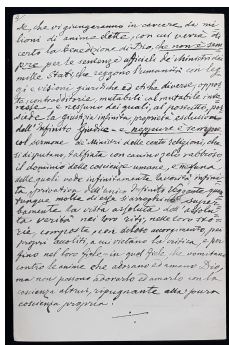 se, che vi giungeranno in carcere da mi-
lioni di anime elette, con cui verrà di
certo la benedizione di Dio, che non è sem-
pre per le sentenze ufficiali de' Ministri dei
mille Stati, che reggono l'umanità con leg-
gi e visioni giuridiche ed etiche diverse, oppo-
ste, contraddittorie, mutabili col mutabile inte-
resse e nessuno dei quali, al postutto, pos-
siede la giustizia infinita, proprietà esclusiva
dell'Infinito Giudice e neppure è sempre
col sermone de' Ministri delle cento religioni, che
si disputano, talfiata con accanimento,
il dominio delle coscienze umane, e niuna
delle quali vede infinitamente la verità infini-
ta privativa dell'unico Infinito Veggente, quan-
tunque molte di esse si arroghino
la vita assoluta dell'assolu-
ta verità nei loro riti, nelle loro teo-
rie, composte con doloso accorgimento, pei
proprii accoliti, a cui vietano la critica, e per-
fino nel loro fiele in quel fiele, che vomitano
contro le anime che adorano ed amano Dio,
ma non possono adorarlo ed amarlo con la
coscienza altrui, ripugnante alla pura
coscienza propria.